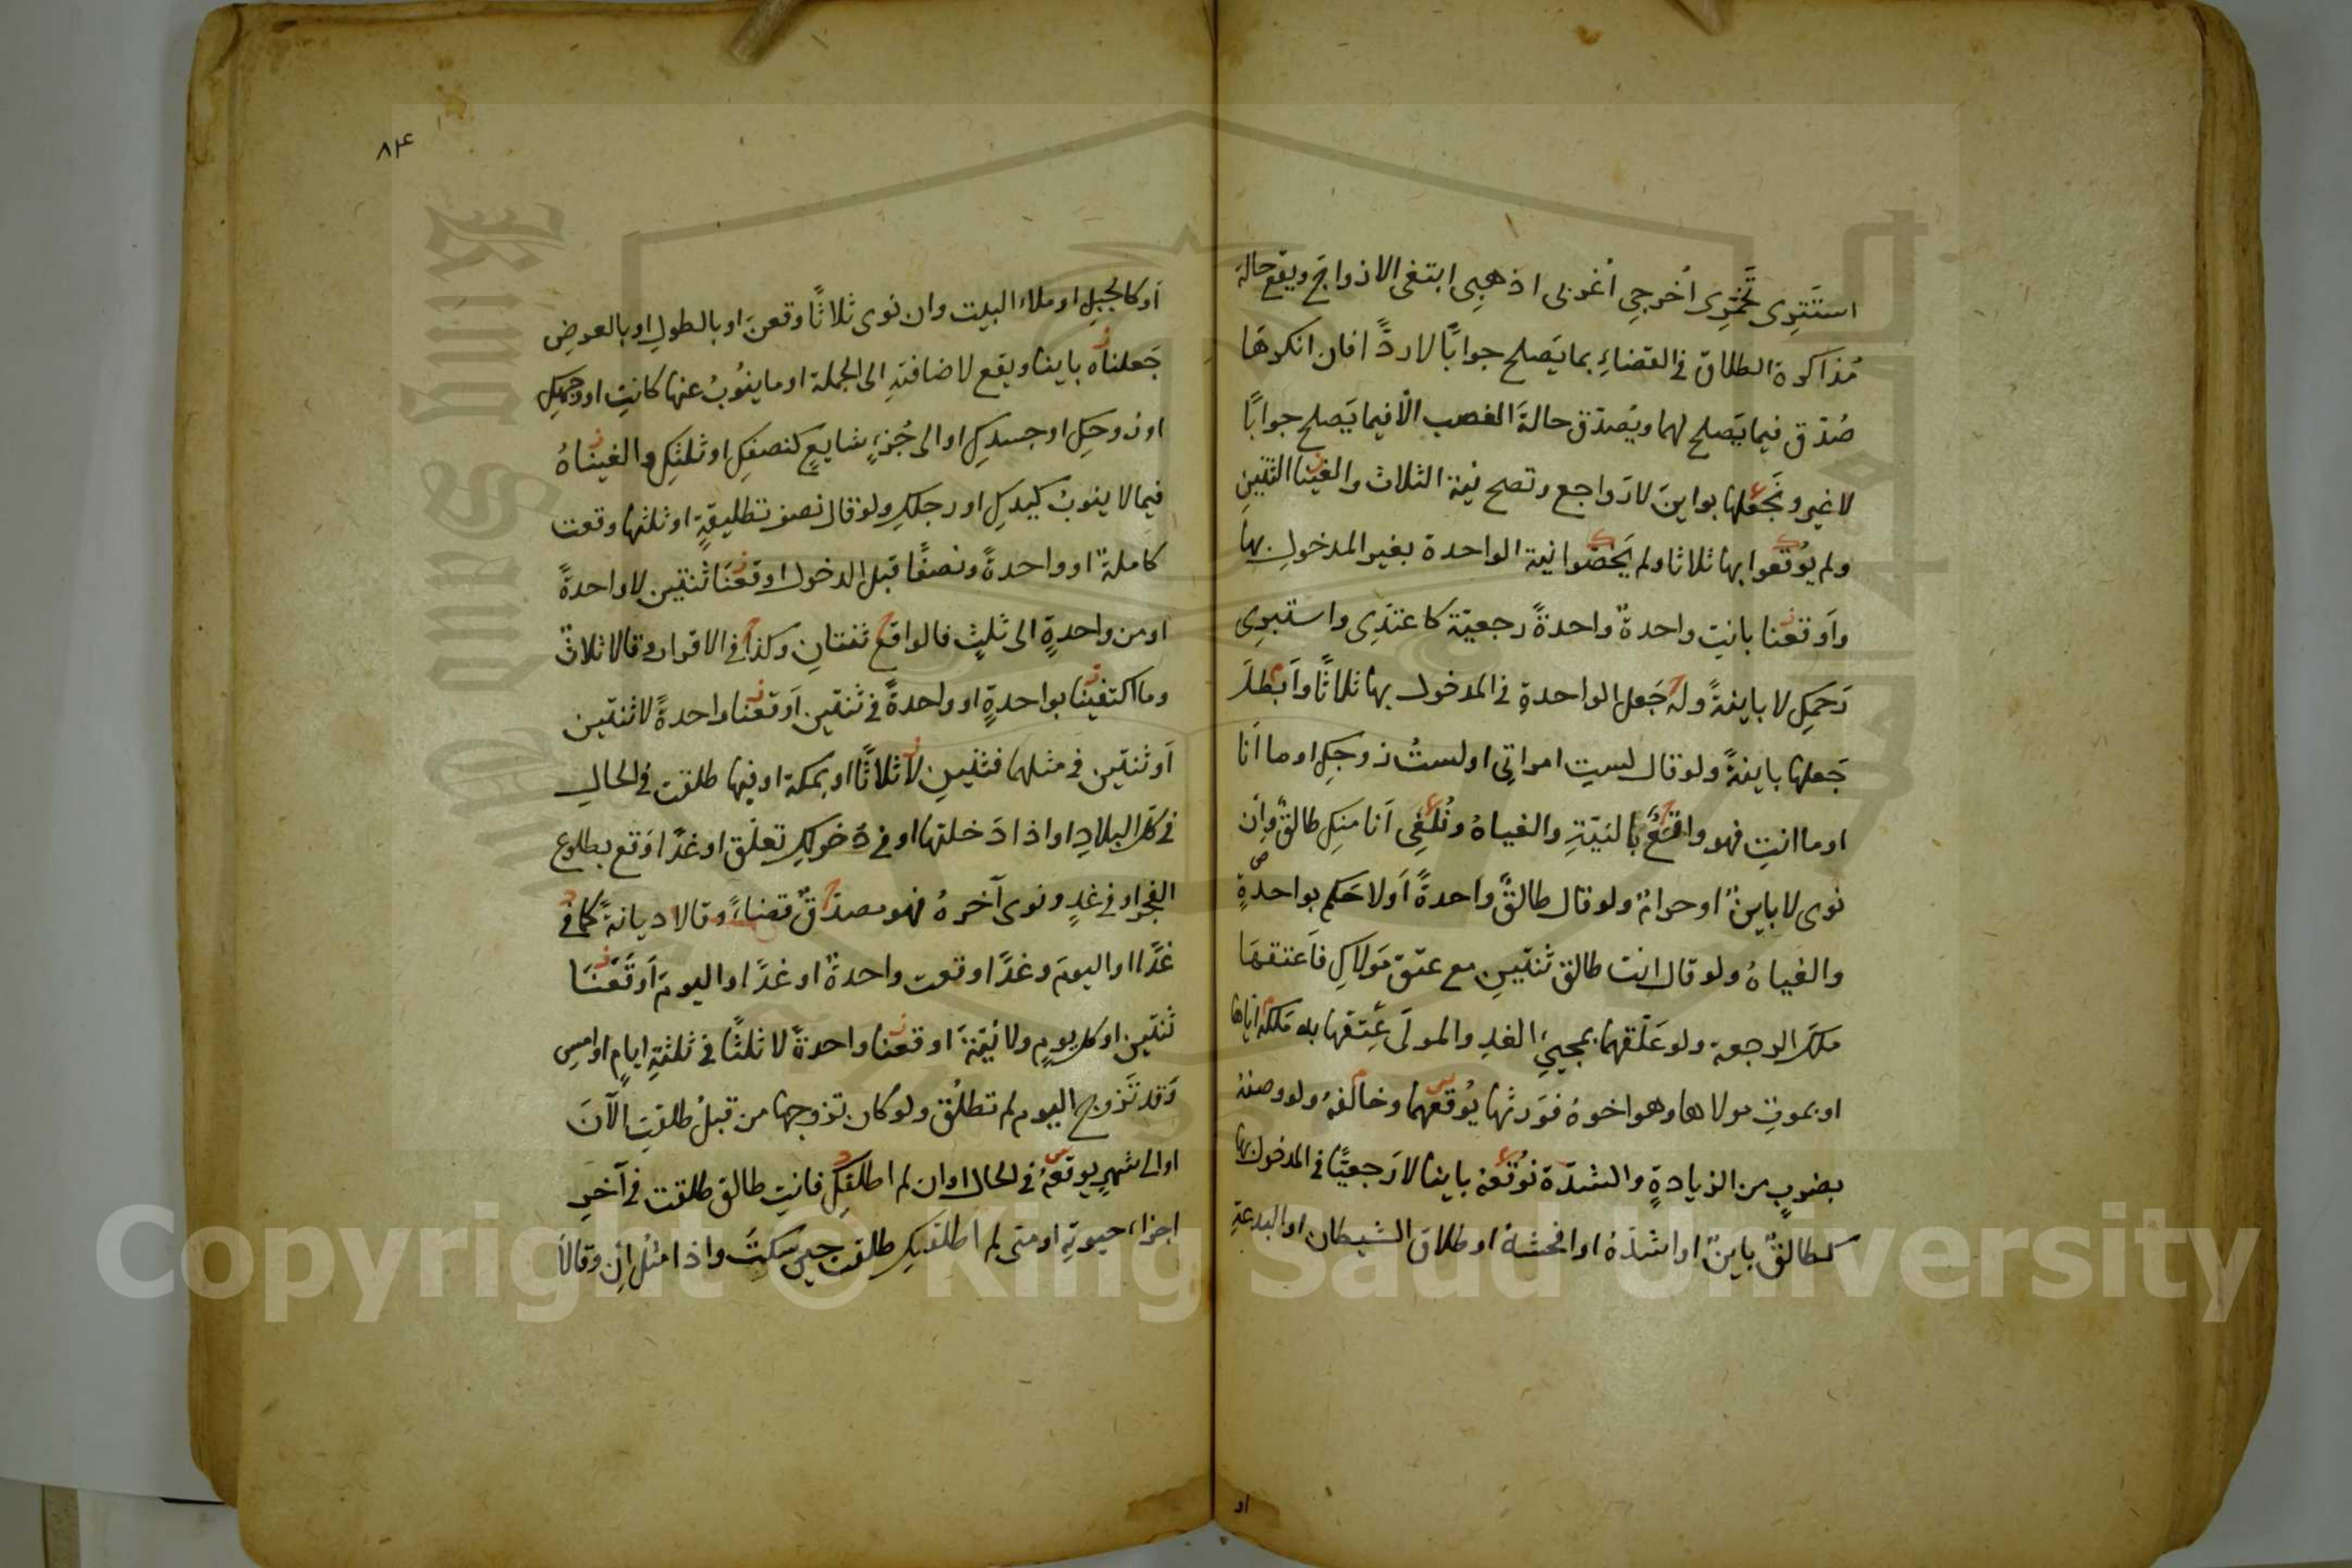 استتري تخمّري أخرجي أغربي اذهبي ابتغى الازواج ويقع حالة
مُذاكرة الطلاق في القضاءِ بما يَصلح جوابًا لا ردًّا فان انكرها
صُدّق فيما يَصلح لهما ويُصدّق حالةَ الغضب الّا فيما يَصلح جوابًا
لا غير ونَجعلها بواينَ لا رَواجع وتصح نية الثلاث والغينا الثنتينِ
ولم يوُقعوا بها ثلاثا ولم يَخصّوا نية الواحدة بغير المدخولِ بها
واَوقعنا بانتِ واحدةٌ واحدةً رجعيّة كاعتدّى واستبرى
رَحمكِ لا باينةً ولم جَعل الواحدةِ في المدخول بها ثلاثًا واَبطلَ
جَعلها باينةً ولو قال لستِ امراتِى او لستُ زوجكِ او ما اَنا
او ما انتِ فهو واقعٌ بالنيّةِ والغياهُ ونُلغِى اَنا منكِ طالقٌ واِن
نوى لا باينٌ او حرامٌ ولو قال طالقٌ واحدةً اَو لا حَكم بواحدةٍ
والغياهُ ولو قال انت طالق ثنتينِ مع عتق مَولاكِ فاَعتقهَا
مَلكَ الرجعة ولو عَلّقهما بمجيئ الغدِ والمولَى عِتقها به مَلكه اياها
او بموتِ مولاها وهو اخوهُ فوَرثها يُوقعهما وخالفهُ ولو وصفهُ
بضربٍ من الزيادةِ والشدّة نوُقعهُ باينا لا رَجعيًّا في المدخول بها
كـطالقٌ باينٌ او اشدّهُ او افحشهُ او طلاق الشيطان او البدعةِ
او
٨٤
اَو كالجبلِ او ملاء البيت وان نوى ثلاثًا وقعن او بالطولِ او بالعرضِ
جَعلناه باينا ويقع لاضافتهِ الى الجملة او ما ينُوبُ عنها كانتِ او وجهكِ
او روحكِ او جسدكِ او الى جُزءٍ شايعٍ كنصفكِ او ثلثكِ والغيناهُ
فيما لا ينوبُ كيدكِ او رجلكِ ولو قال نصف تطليقةٍ او ثلثها وقعت
كاملةً او واحدةً ونصفًا قبل الدخول اوقعنَا ثنتين لا واحدةً
او من واحدةٍ الى ثلثٍ فالواقع ثنتانِ وكذا في الاقرار وقالا ثلاثٌ
وما اكتفينا بواحدةٍ او واحدةً في ثنتين اَوقعنا واحدةً لا ثنتين
اَو ثنتين في مثلهما فثنتينِ لا ثلاثًا او بمكة او فيها طلقت في الحالِ
في كل البلادِ او اذا دَخلتها او في دُخولكِ تعلّق او غدًا وَقع بطلوع
الفجر او في غدٍ ونوى آخرهُ فهو مصدّقٌ قضاءً وقالا ديانةً كما في
غدًا او اليومَ وغدًا وقعت واحدةٌ او غدًا واليومَ اَوقَعنَا
ثنتين او كل يومٍ ولا نيّةَ اوقعنا واحدةً لا ثلثًا في ثلثةِ ايامٍ او امسِ
وَقد تَزوج اليوم لم تطلُق ولو كان تزوجها من قبلُ طلقتِ الآنَ
او الى شهرٍ يوقعهُ في الحال او ان لم اطلقكِ فانتِ طالق طلقت في آخرِ
اجزاء حيوتهِ او متى لم اطلقكِ طلقت حين سكتَ واذا مثلُ اِن وقالَا
Copyright © King Saud University